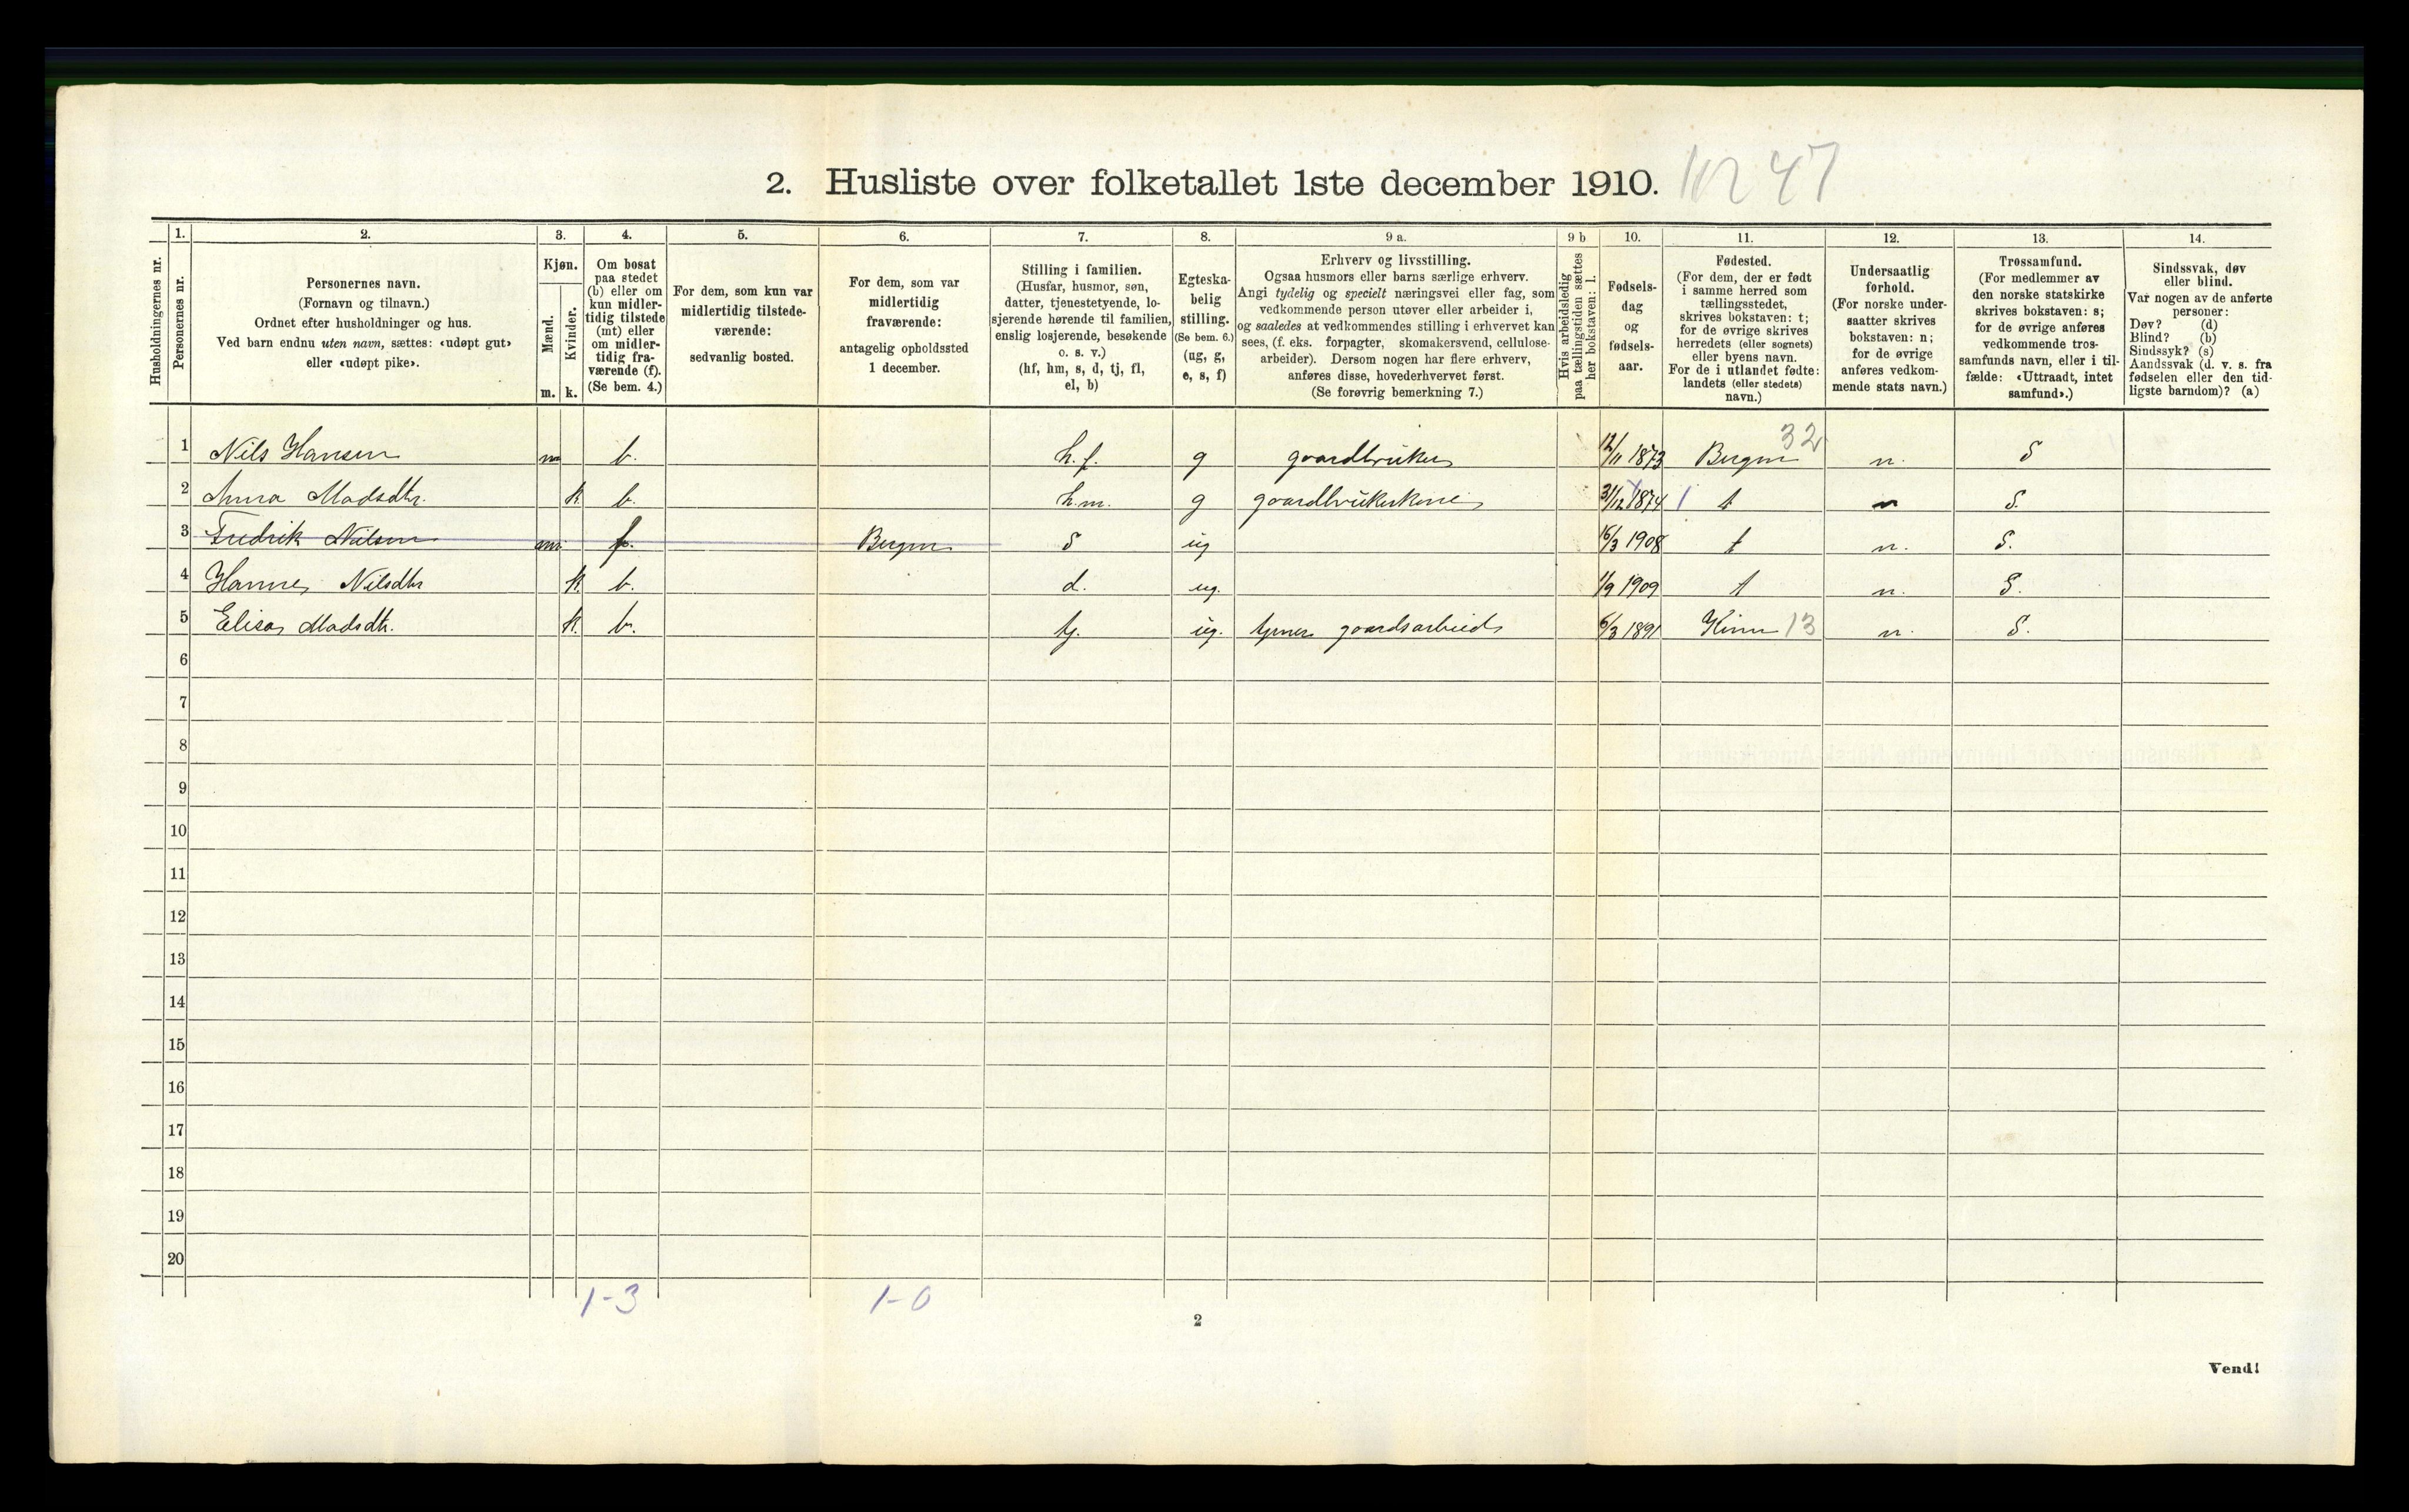 2. Husliste over folketallet 1ste december 1910. 47
Husholdningernes nr.
1.
Personernes nr.
2.
Personernes navn.
(Fornavn og tilnavn.)
Ordnet efter husholdninger og hus.
Ved barn endnu uten navn, sættes: «udøpt gut»
eller «udøpt pike».
3.
Kjøn.
Mænd.
Kvinder.
m. k.
4.
Om bosat
paa stedet
(b) eller om
kun midler-
tidig tilstede
(mt) eller
om midler-
tidig fra-
værende (f).
(Se bem. 4.)
5.
For dem, som kun var
midlertidig tilstede-
værende:
sedvanlig bosted.
6.
For dem, som var
midlertidig
fraværende:
antagelig opholdssted
1 december.
7.
Stilling i familien.
(Husfar, husmor, søn,
datter, tjenestetyende, lo-
sjerende hørende til familien,
enslig losjerende, besøkende
o. s. v.)
(hf, hm, s, d, tj, fl,
el, b)
8.
Egteska-
belig
stilling.
(Se bem. 6.)
(ug, g,
e, s, f)
9 a.
Erhverv og livsstilling.
Ogsaa husmors eller barns særlige erhverv.
Angi tydelig og specielt næringsvei eller fag, som
vedkommende person utøver eller arbeider i,
og saaledes at vedkommendes stilling i erhvervet kan
sees, (f. eks. forpagter, skomakersvend, cellulose-
arbeider). Dersom nogen har flere erhverv,
anføres disse, hovederhvervet først.
(Se forøvrig bemerkning 7.)
9 b
Hvis arbeidsledig
paa tællingstiden sættes
her bokstaven: l.
10.
Fødsels-
dag
og
fødsels-
aar.
11.
Fødested.
(For dem, der er født
i samme herred som
tællingsstedet,
skrives bokstaven: t;
for de øvrige skrives
herredets (eller sognets)
eller byens navn.
For de i utlandet fødte:
landets (eller stedets)
navn.)
12.
Undersaatlig
forhold.
(For norske under-
saatter skrives
bokstaven: n;
for de øvrige
anføres vedkom-
mende stats navn.)
13.
Trossamfund.
(For medlemmer av
den norske statskirke
skrives bokstaven: s;
for de øvrige anføres
vedkommende tros-
samfunds navn, eller i til-
fælde: «Uttraadt, intet
samfund».)
14.
Sindssvak, døv
eller blind.
Var nogen av de anførte
personer:
Døv? (d)
Blind? (b)
Sindssyk? (s)
Aandssvak (d. v. s. fra
fødselen eller den tid-
ligste barndom)? (a)
1 Nils Hansen m b. h.f. g gaardbruker 12/11 1873 Bergen 32 n. S
2 Anna Madsdtr. k b. h.m. g gaardbrukerkone 31/12 1874 1 t n S.
3 Fredrik Nilsen m f. Bergen S ug 16/3 1908 t n. S.
4 Hanne Nilsdtr k b. d. ug. 1/9 1909 t n. S.
5 Elisa Madsdtr. k b. tj. ug. tjener gaardsarbied 6/3 1891 Kinn 13 n. S.
6
7
8
9
10
11
12
13
14
15
16
17
18
19
20
1-3 1-0
2
Vend!